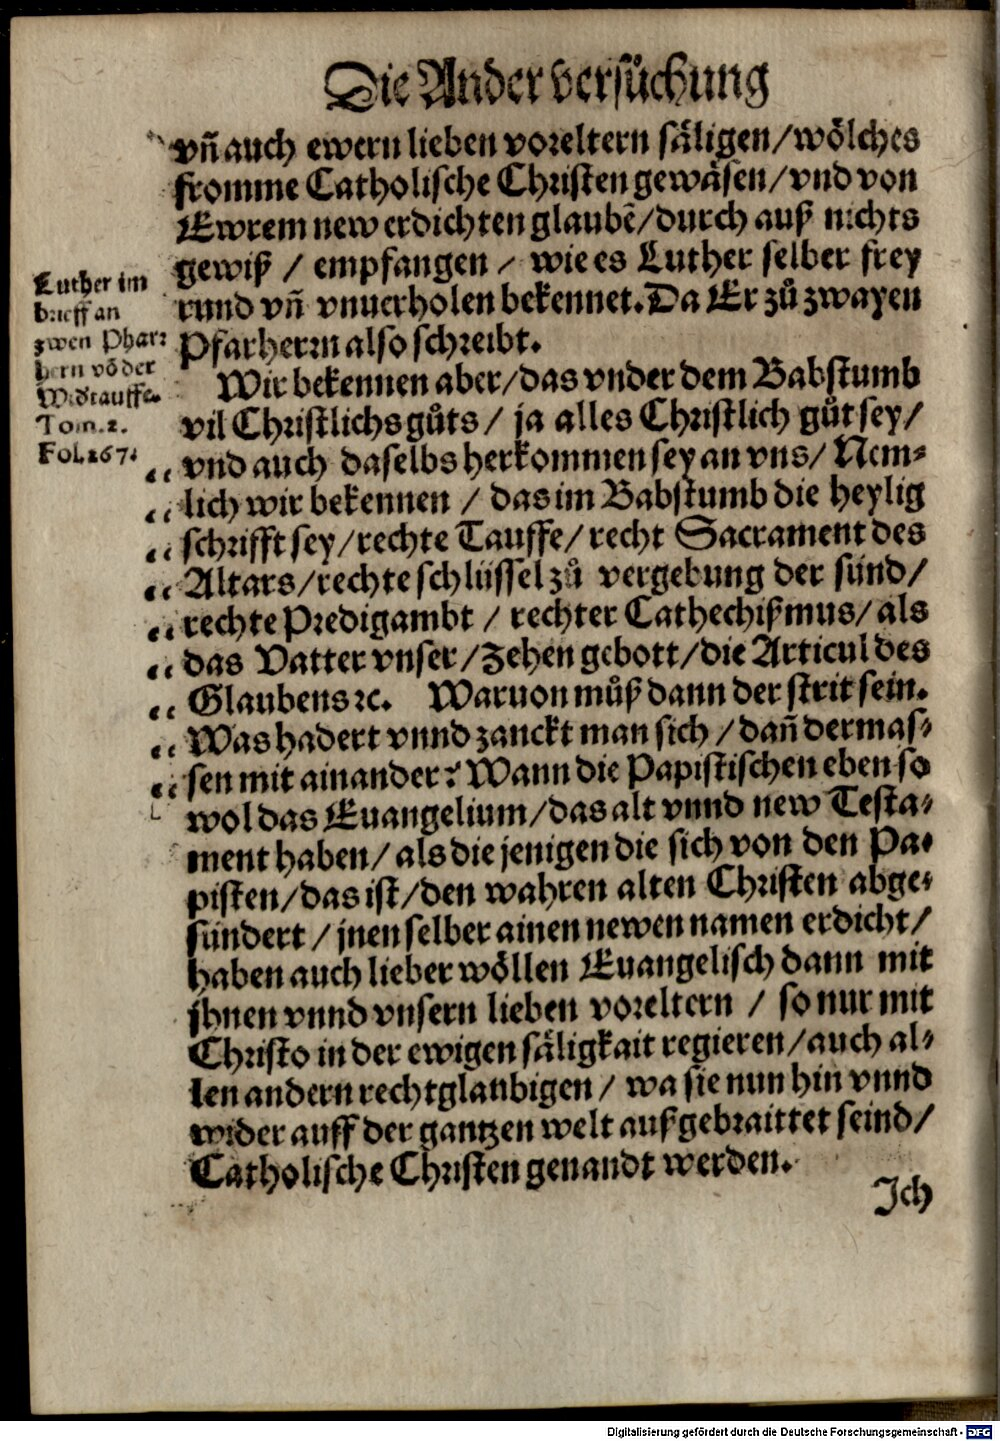 Die Ander versůchung
vñ auch ewern lieben voreltern säligen/ wölches
fromme Catholische Christen gewäsen/ vnd von
Ewrem new erdichten glaubẽ/ durch auß nichts
gewiß / empfangen / wie es Luther selber frey
rund vñ vnuerholen bekennet. Da Er zů zwayen
Pfarherrn also schreibt.
Wir bekennen aber/ das vnder dem Babstumb
vil Christlichs gůts/ ja alles Christlich gůt sey/
„ vnd auch daselbs herkommen sey an vns/ Nem-
„ lich wir bekennen / das im Babstumb die heylig
„ schrifft sey/ rechte Tauffe/ recht Sacrament des
„ Altars/ rechte schlüssel zů vergebung der sünd/
„ rechte Predigambt / rechter Cathechißmus/ als
„ das Vatter vnser/ Zehen gebott/ die Articul des
„ Glaubens ꝛc. Waruon můß dann der strit sein.
„ Was hadert vnnd zanckt man sich / dañ dermas-
„ sen mit ainander? Wann die Papistischen eben so
wol das Euangelium/ das alt vnnd new Testa-
ment haben/ als die jenigen die sich von den Pa-
pisten/ das ist/ den wahren alten Christen abge-
sündert / jnen selber ainen newen namen erdicht/
haben auch lieber wöllen Euangelisch dann mit
jhnen vnnd vnsern lieben voreltern / so nur mit
Christo in der ewigen säligkait regieren/ auch al-
len andern rechtglaubigen/ wa sie nun hin vnnd
wider auff der gantzen welt auß gebraittet seind/
Catholische Christen genandt werden.
Ich
Luther im
brieff an
zwen Phar-
hern võ der
Widtauffe.
Tom. 2.
Fol. 267.
Digitalisierung gefördert durch die Deutsche Forschungsgemeinschaft - DFG